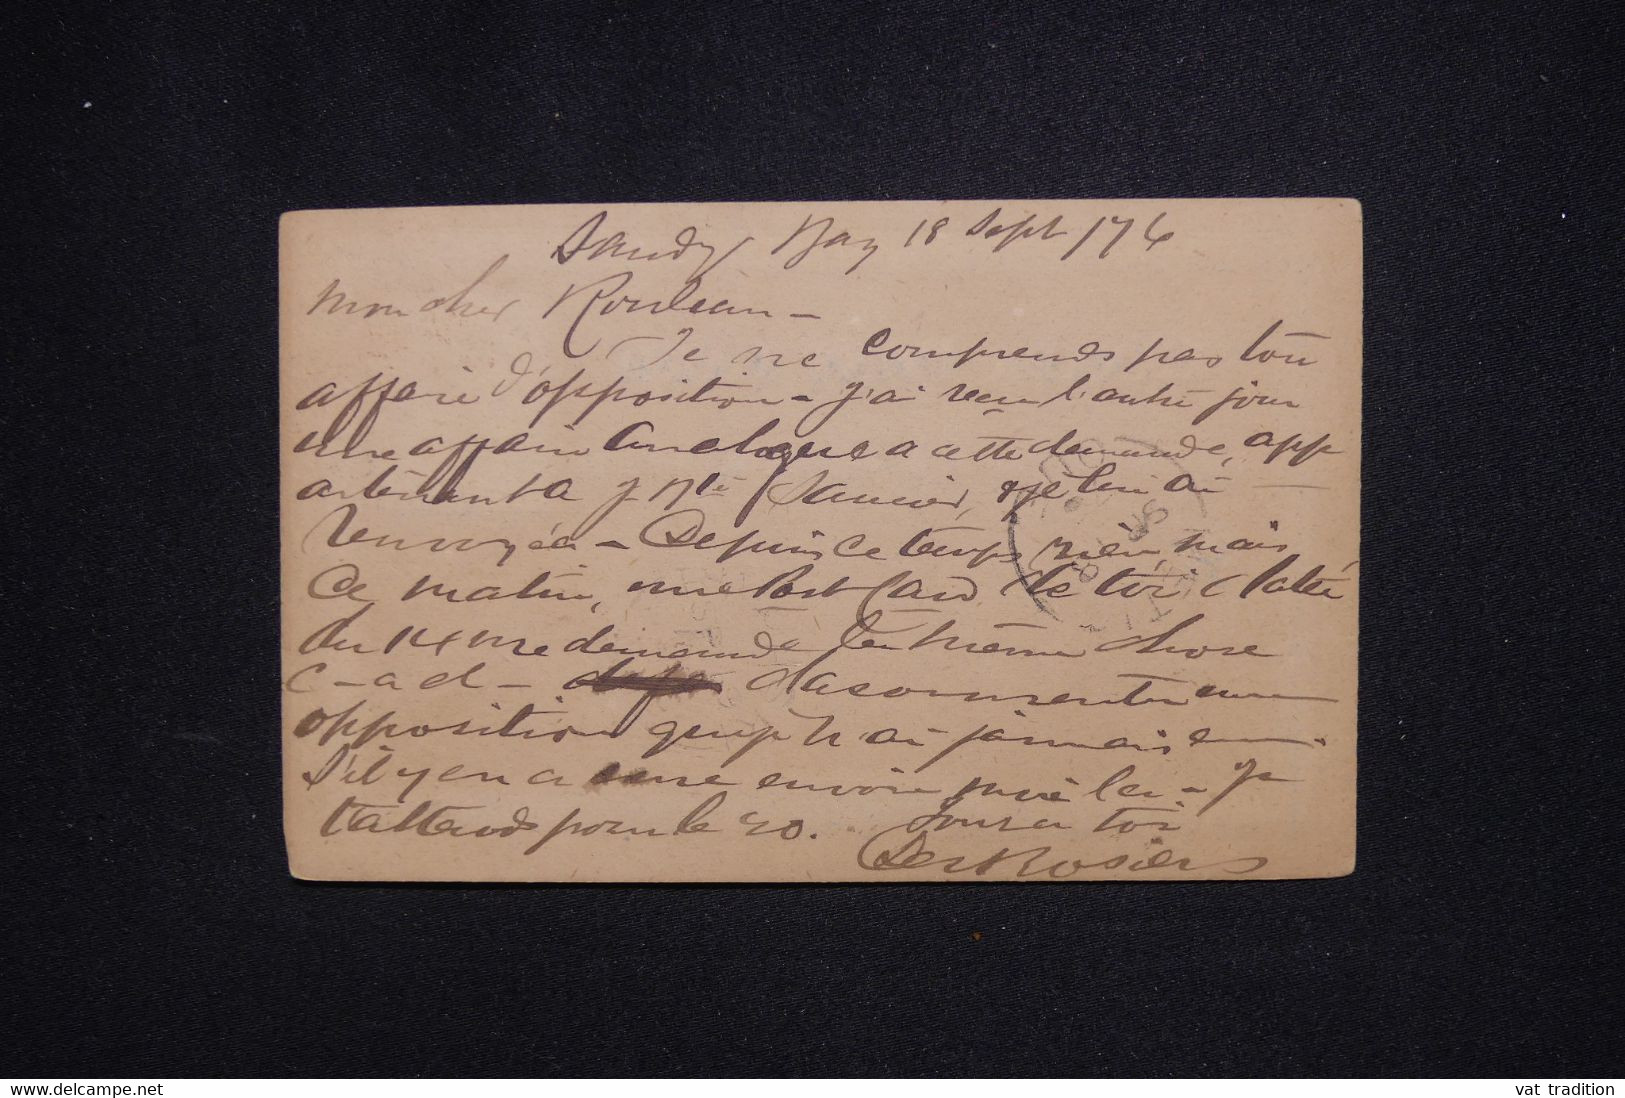 Sandy Bay 18 Sept /76
Mon cher Rouleau -
Je ne comprends pas ton
affaire d'opposition - J'ai reçu l'autre jour
une affaire analogue a cette demande, app
artenant a J Bte Saucier, & je lui ai
renvoyée - Depuis ce temps rien mais
Ce matin, une Post Card de toi datée
du 14 me demande la même chose
c-a-d- d'assermenter une
opposition que je n'ai jamais eue.
S'il y en a une envoie moi la - Je
t'attends pour le 20. Tout a toi
DesRosiers
www.delcampe.net
vat tradition